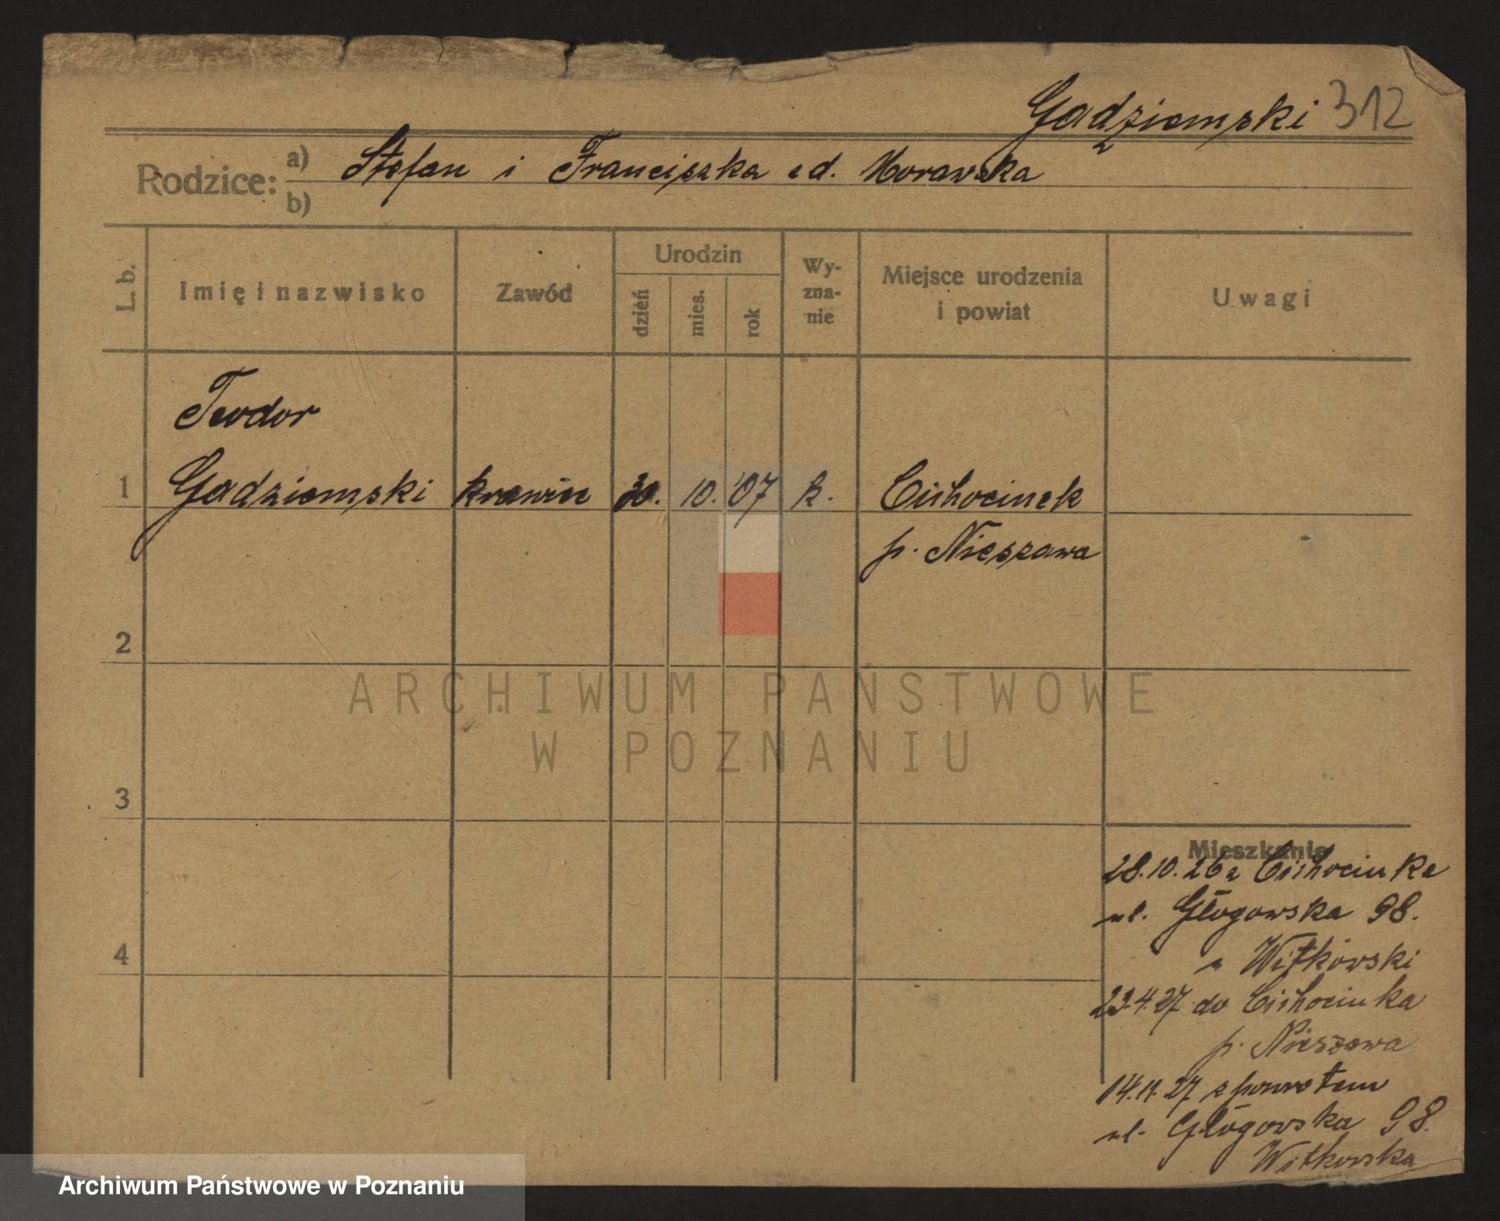 Gadziemski 312
Rodzice: a) Stefan i Franciszka z d. Morawska
b)
L. b. Imię i nazwisko Zawód Urodzin dzień mies. rok Wy-zna-nie Miejsce urodzenia i powiat Uwagi
Teodor
1 Gadziemski krawiec 30. 10. '07 k. Ciehocinek
p. Nieszawa
2
ARCHIWUM PAŃSTWOWE
W POZNANIU
3
Mieszkanie
28.10.26 z Ciehocinka
ul. Głogowska 98.
u Witkowski
4
23.4.27 do Ciehocinka
p. Nieszawa
14.11.27 z powrotem
ul. Głogowska 98.
Witkowska
Archiwum Państwowe w Poznaniu